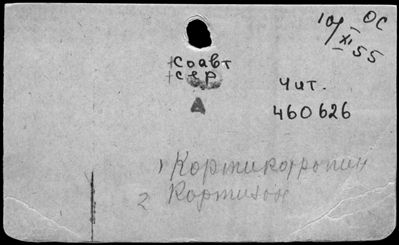 10/XI-55 ОС
+ Соавт
+ сер
А
Чит.
460626
1 Кортикотропин
2 Кортизон